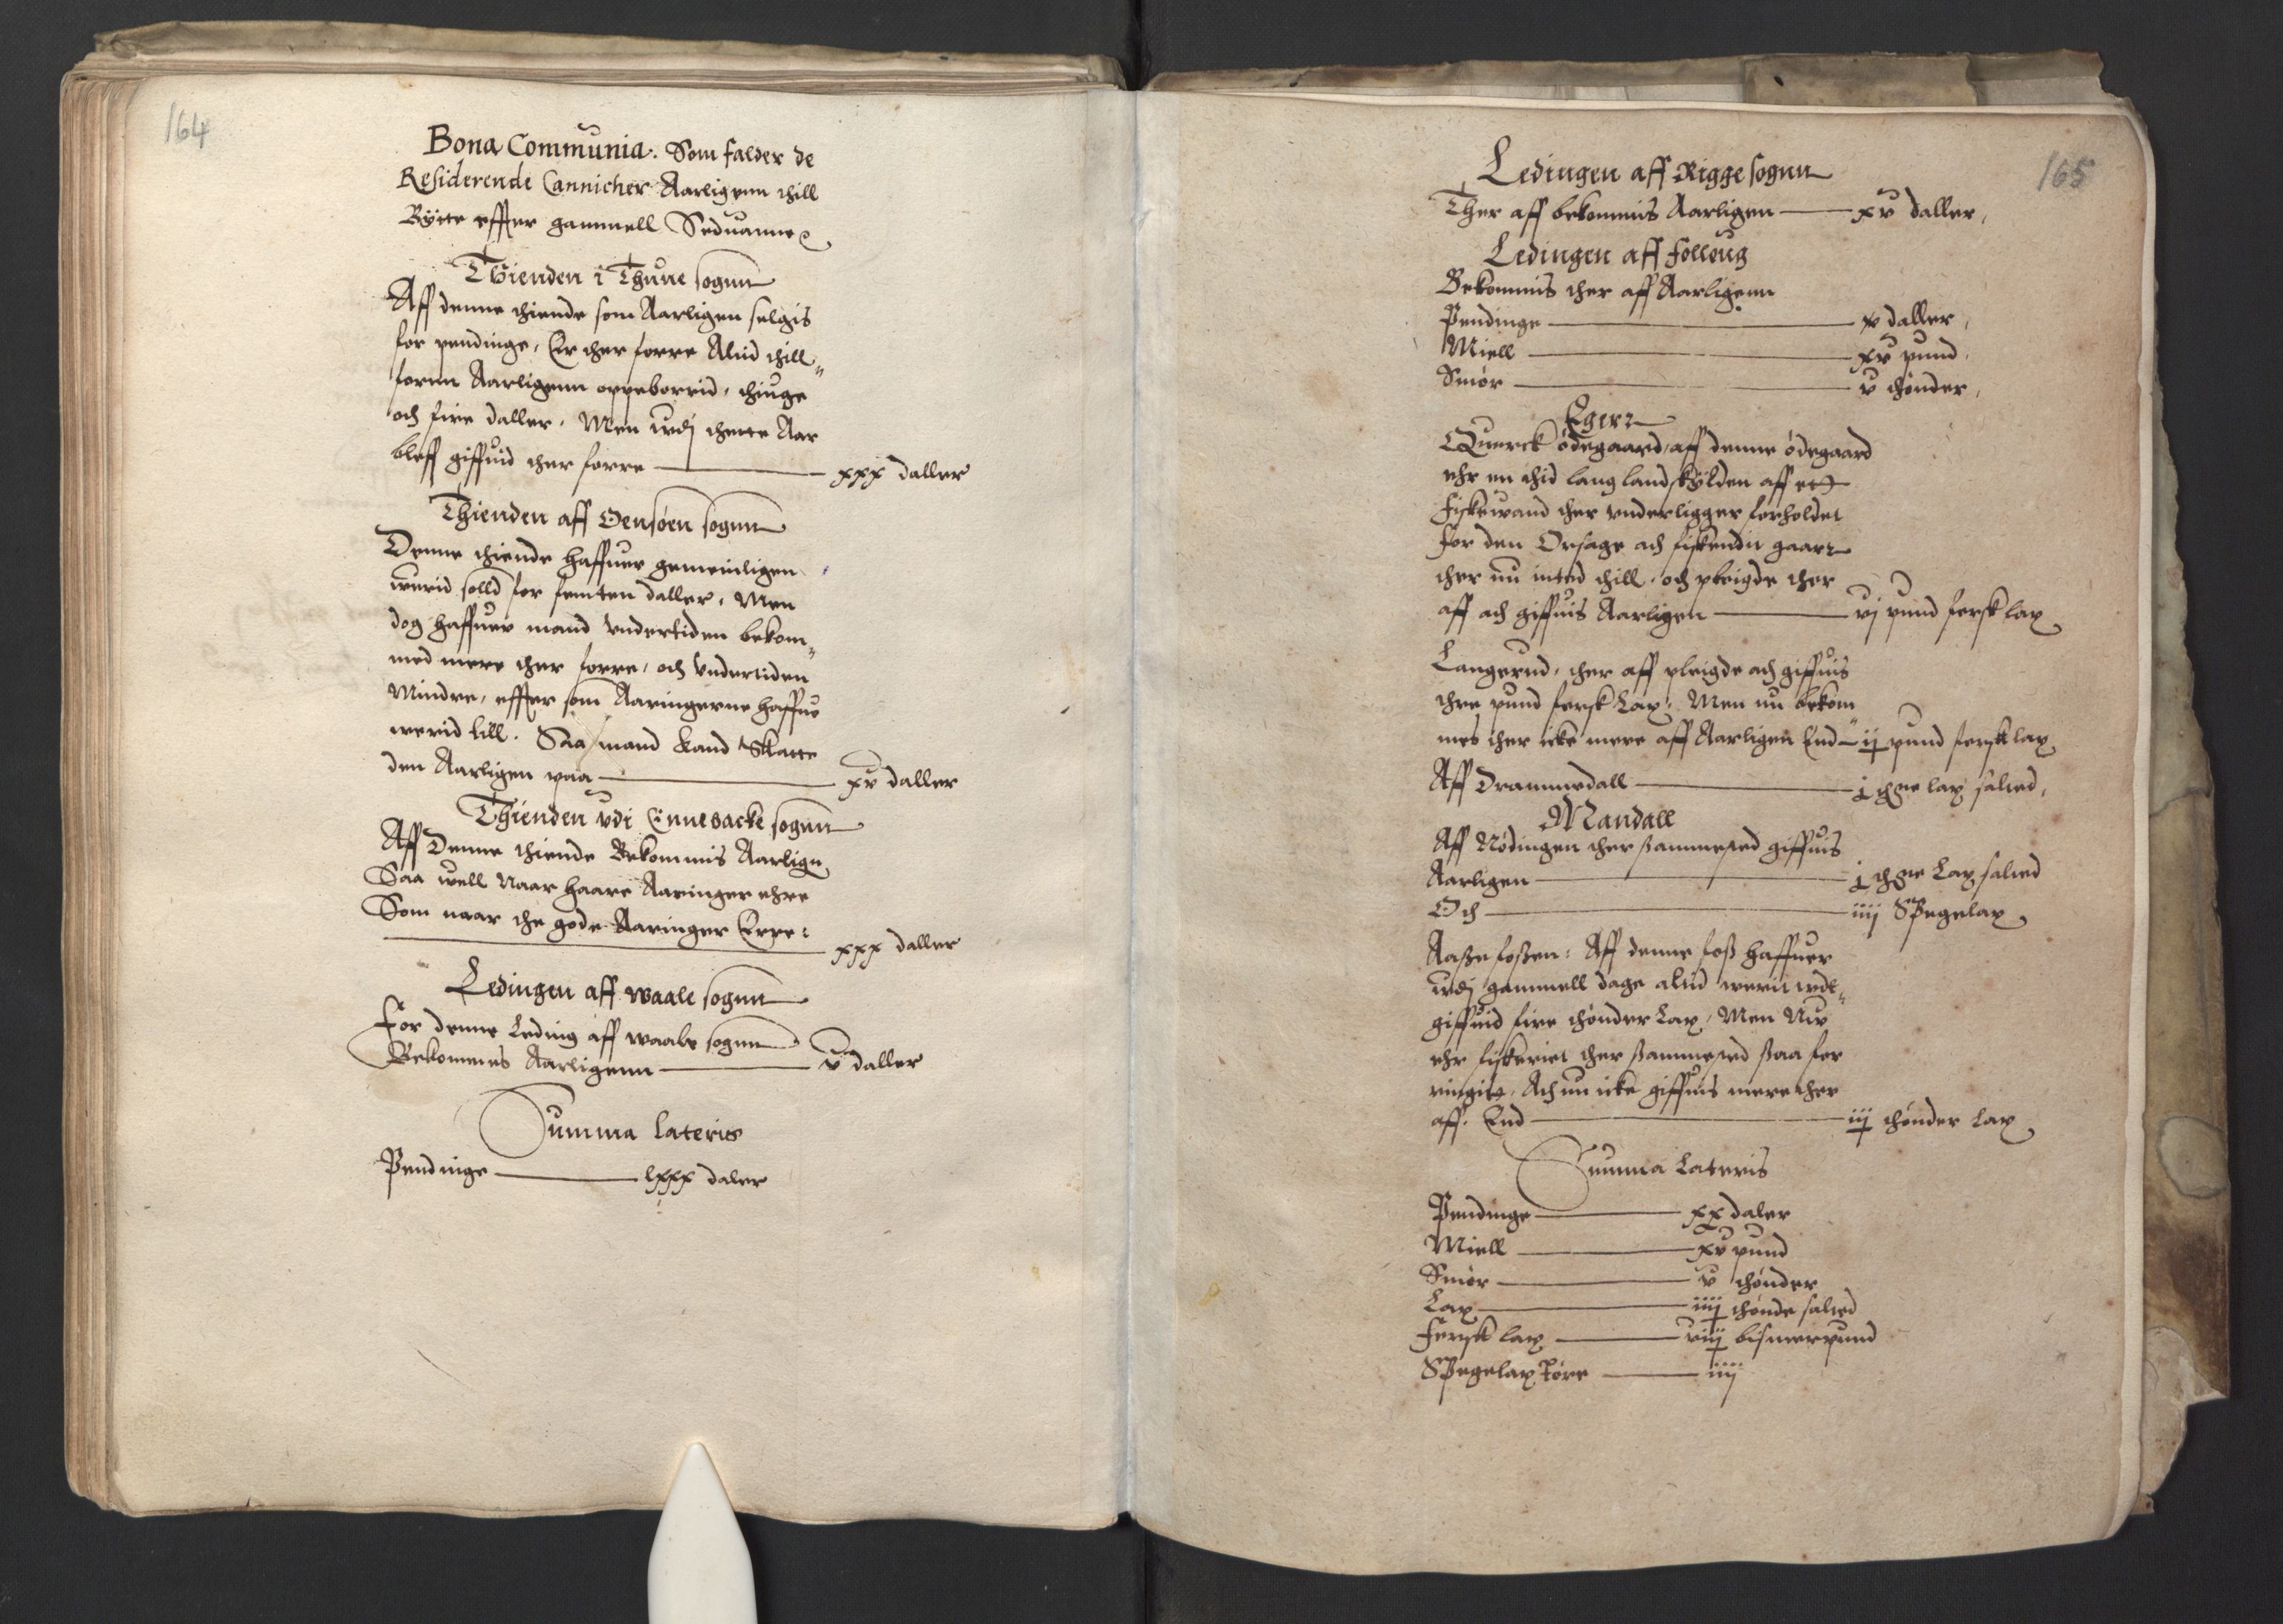 164
Bona Communia. Som falder de
Residerende Cannicher Aarligenn thill
Bÿtte effter gammell Seduanne
Thienden i Thune sognn
Aff denne thiende som Aarligen selgis
for pendinge, Er ther forre Altid thill„
fornn Aarligenn oppeborrid, thiuge
och fire daller. Men wdj thette Aar
bleff giffuid ther forre xxx daller
Thienden aff Oensøen sognn
Denne thiende haffuer gemeinligen
werid solld for femten daller, Men
dog haffuer mand vndertiden bekom„
med mere ther forre, och vndertiden
Mindre, effter som Aaringerne haffue
werid till. Saa mand kand Skatte
den Aarligen paa xv daller
Thienden vdi Ennebacke sognn
Aff Denne thiende Bekommis Aarlign
Saa well Naar haare Aaringer ehre
Som naar the gode Aaringer Erre:
xxx daller
Ledingen aff waale sognn
For denne Leding aff waale sognn
Bekommes Aarligenn v daller
Summa Lateris
Pendinge lxxx daler
165
Ledingen aff Rigge sognn
Ther aff bekommis Aarligen xv daller,
Ledingen aff Folloug
Bekommis ther aff Aarligenn
Pendinge v daller,
Miell xv pund,
Smør v thønder,
Eger
Querck ødegaard, aff denne ødegaard
ehr en thid lang landskÿlden aff ett
Fiskewand ther vnderligger forholdet
for den Orsage att fiskendit gaar
ther nu inted thill, och pleigde ther
aff att giffuis Aarligen vj pund fersk lax
Langerud, ther aff pleigde att giffuis
thre pund fersk Lax, Men nu bekom
mes ther icke mere aff Aarligen End ij pund fersk lax
Aff Drammedall j thøne lax salted,
Mandall
Aff Nødingen ther sammested giffuis
Aarligen j thøne Lax salted
Och iiij Spegelax
Aaßefoßen: Aff denne foß haffuer
wdj gammell dage altid werit wdt„
giffuid fire thønder Lax, Men Nu
ehr fiskeriet ther ßammested ßaa for
ringitt, Att nu icke giffuis mere ther
aff. End iij thønder lax
Summa Lateris
Pendinge xx daler
Miell xv pund
Smør v thønder
Lax iiij thønde salted
Fersk lax viij bismerpund
Spegelax tørre iiij